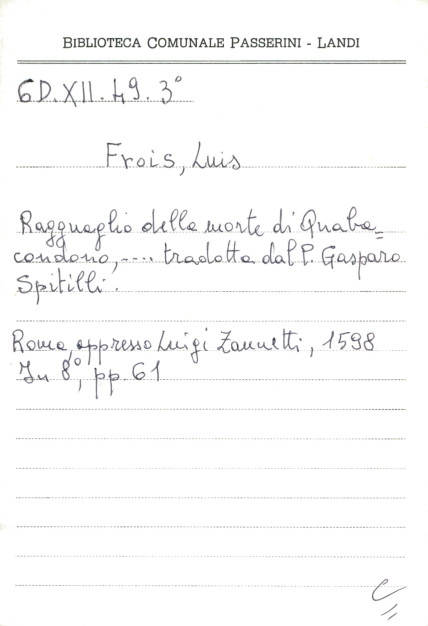 BIBLIOTECA COMUNALE PASSERINI - LANDI
6D.XII.49.3°
Frois, Luis
Ragguaglio della morte di Quaba=
condono, .... tradotta dal P. Gasparo
Spitilli.
Roma, appresso Luigi Zannetti, 1598
In 8°, pp. 61